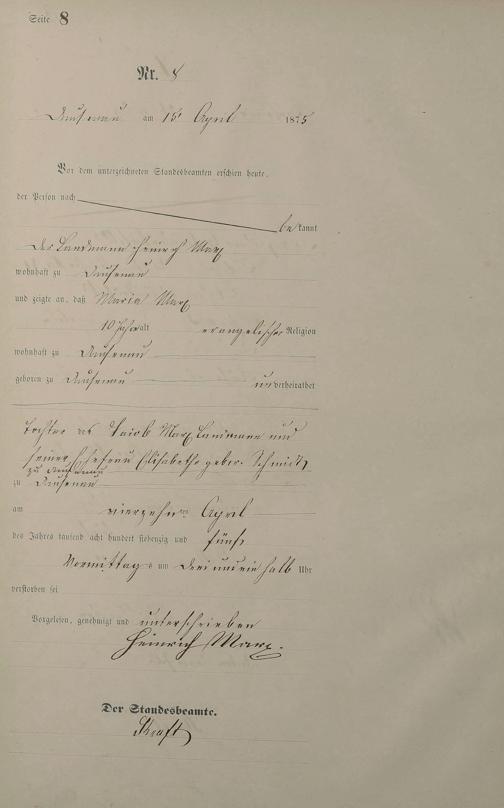 Seite 8
Nr. 8
Dausenau am 15 April 1875
Vor dem unterzeichneten Standesbeamten erschien heute,
der Person nach
bekannt
der Landmann Heinrich Marx
wohnhaft zu Dausenau
und zeigte an, daß Maria Marx
10 Jahre alt evangelischer Religion
wohnhaft zu Dausenau
geboren zu Dausenau unverheirathet
Tochter des Jacob Marx Landmann und
seiner Ehefrau Elisabethe geber. Schmidt
zu Dausenau
zu Dausenau
am vierzehnten April
des Jahres tausend acht hundert siebenzig und fünf
Vormittags um drei und ein halb Uhr
verstorben sei
Vorgelesen, genehmigt und unterschrieben
Heinrich Marx.
Der Standesbeamte.
Kraft